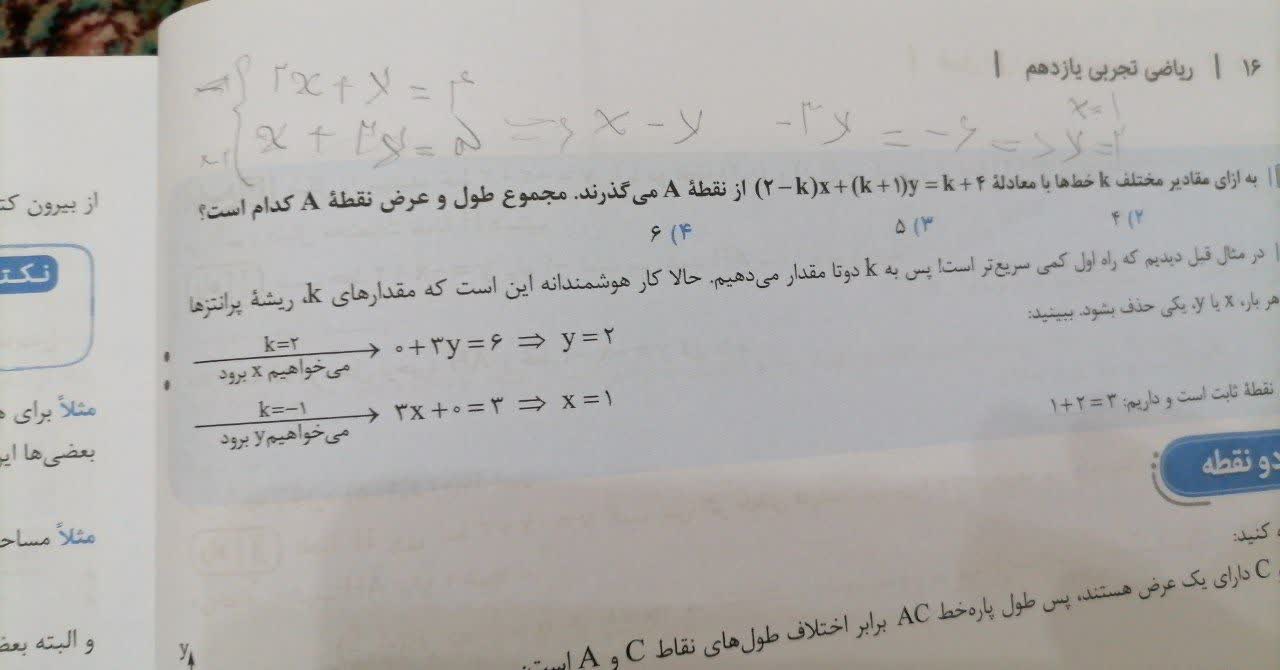 ۱۶ | ریاضی تجربی یازدهم
۲x + y = ۴
x + ۲y = ۵
x = ۱
y = ۲
به ازای مقادیر مختلف k خط‌ها با معادلهٔ (۲−k)x+(k+۱)y = k+۴ از نقطهٔ A می‌گذرند. مجموع طول و عرض نقطهٔ A کدام است؟
۲) ۴ ۳) ۵ ۴) ۶
در مثال قبل دیدیم که راه اول کمی سریع‌تر است! پس به k دوتا مقدار می‌دهیم. حالا کار هوشمندانه این است که مقدارهای k، ریشهٔ پرانتزها
هر بار، x یا y، یکی حذف بشود. ببینید:
k=۲ می‌خواهیم x برود → ۰+۳y = ۶ ⇒ y = ۲
k=−۱ می‌خواهیم y برود → ۳x+۰ = ۳ ⇒ x = ۱
نقطهٔ ثابت است و داریم: ۱+۲ = ۳
دو نقطه
کنید:
C دارای یک عرض هستند، پس طول پاره‌خط AC برابر اختلاف طول‌های نقاط C و A است:
y
از بیرون
نکته
مثلاً برای
بعضی‌ها
مثلاً
و البته